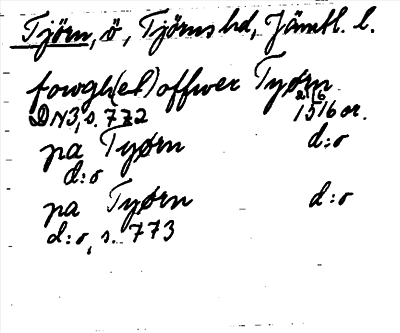 Tjörn, ö, Tjörns hd, Jämtl. l.
fowgh(et) offwer Tyørn
DN3, s. 772 1516 or.
pa Tyørn d:o
d:o
pa Tyørn d:o
d:o, s. 773